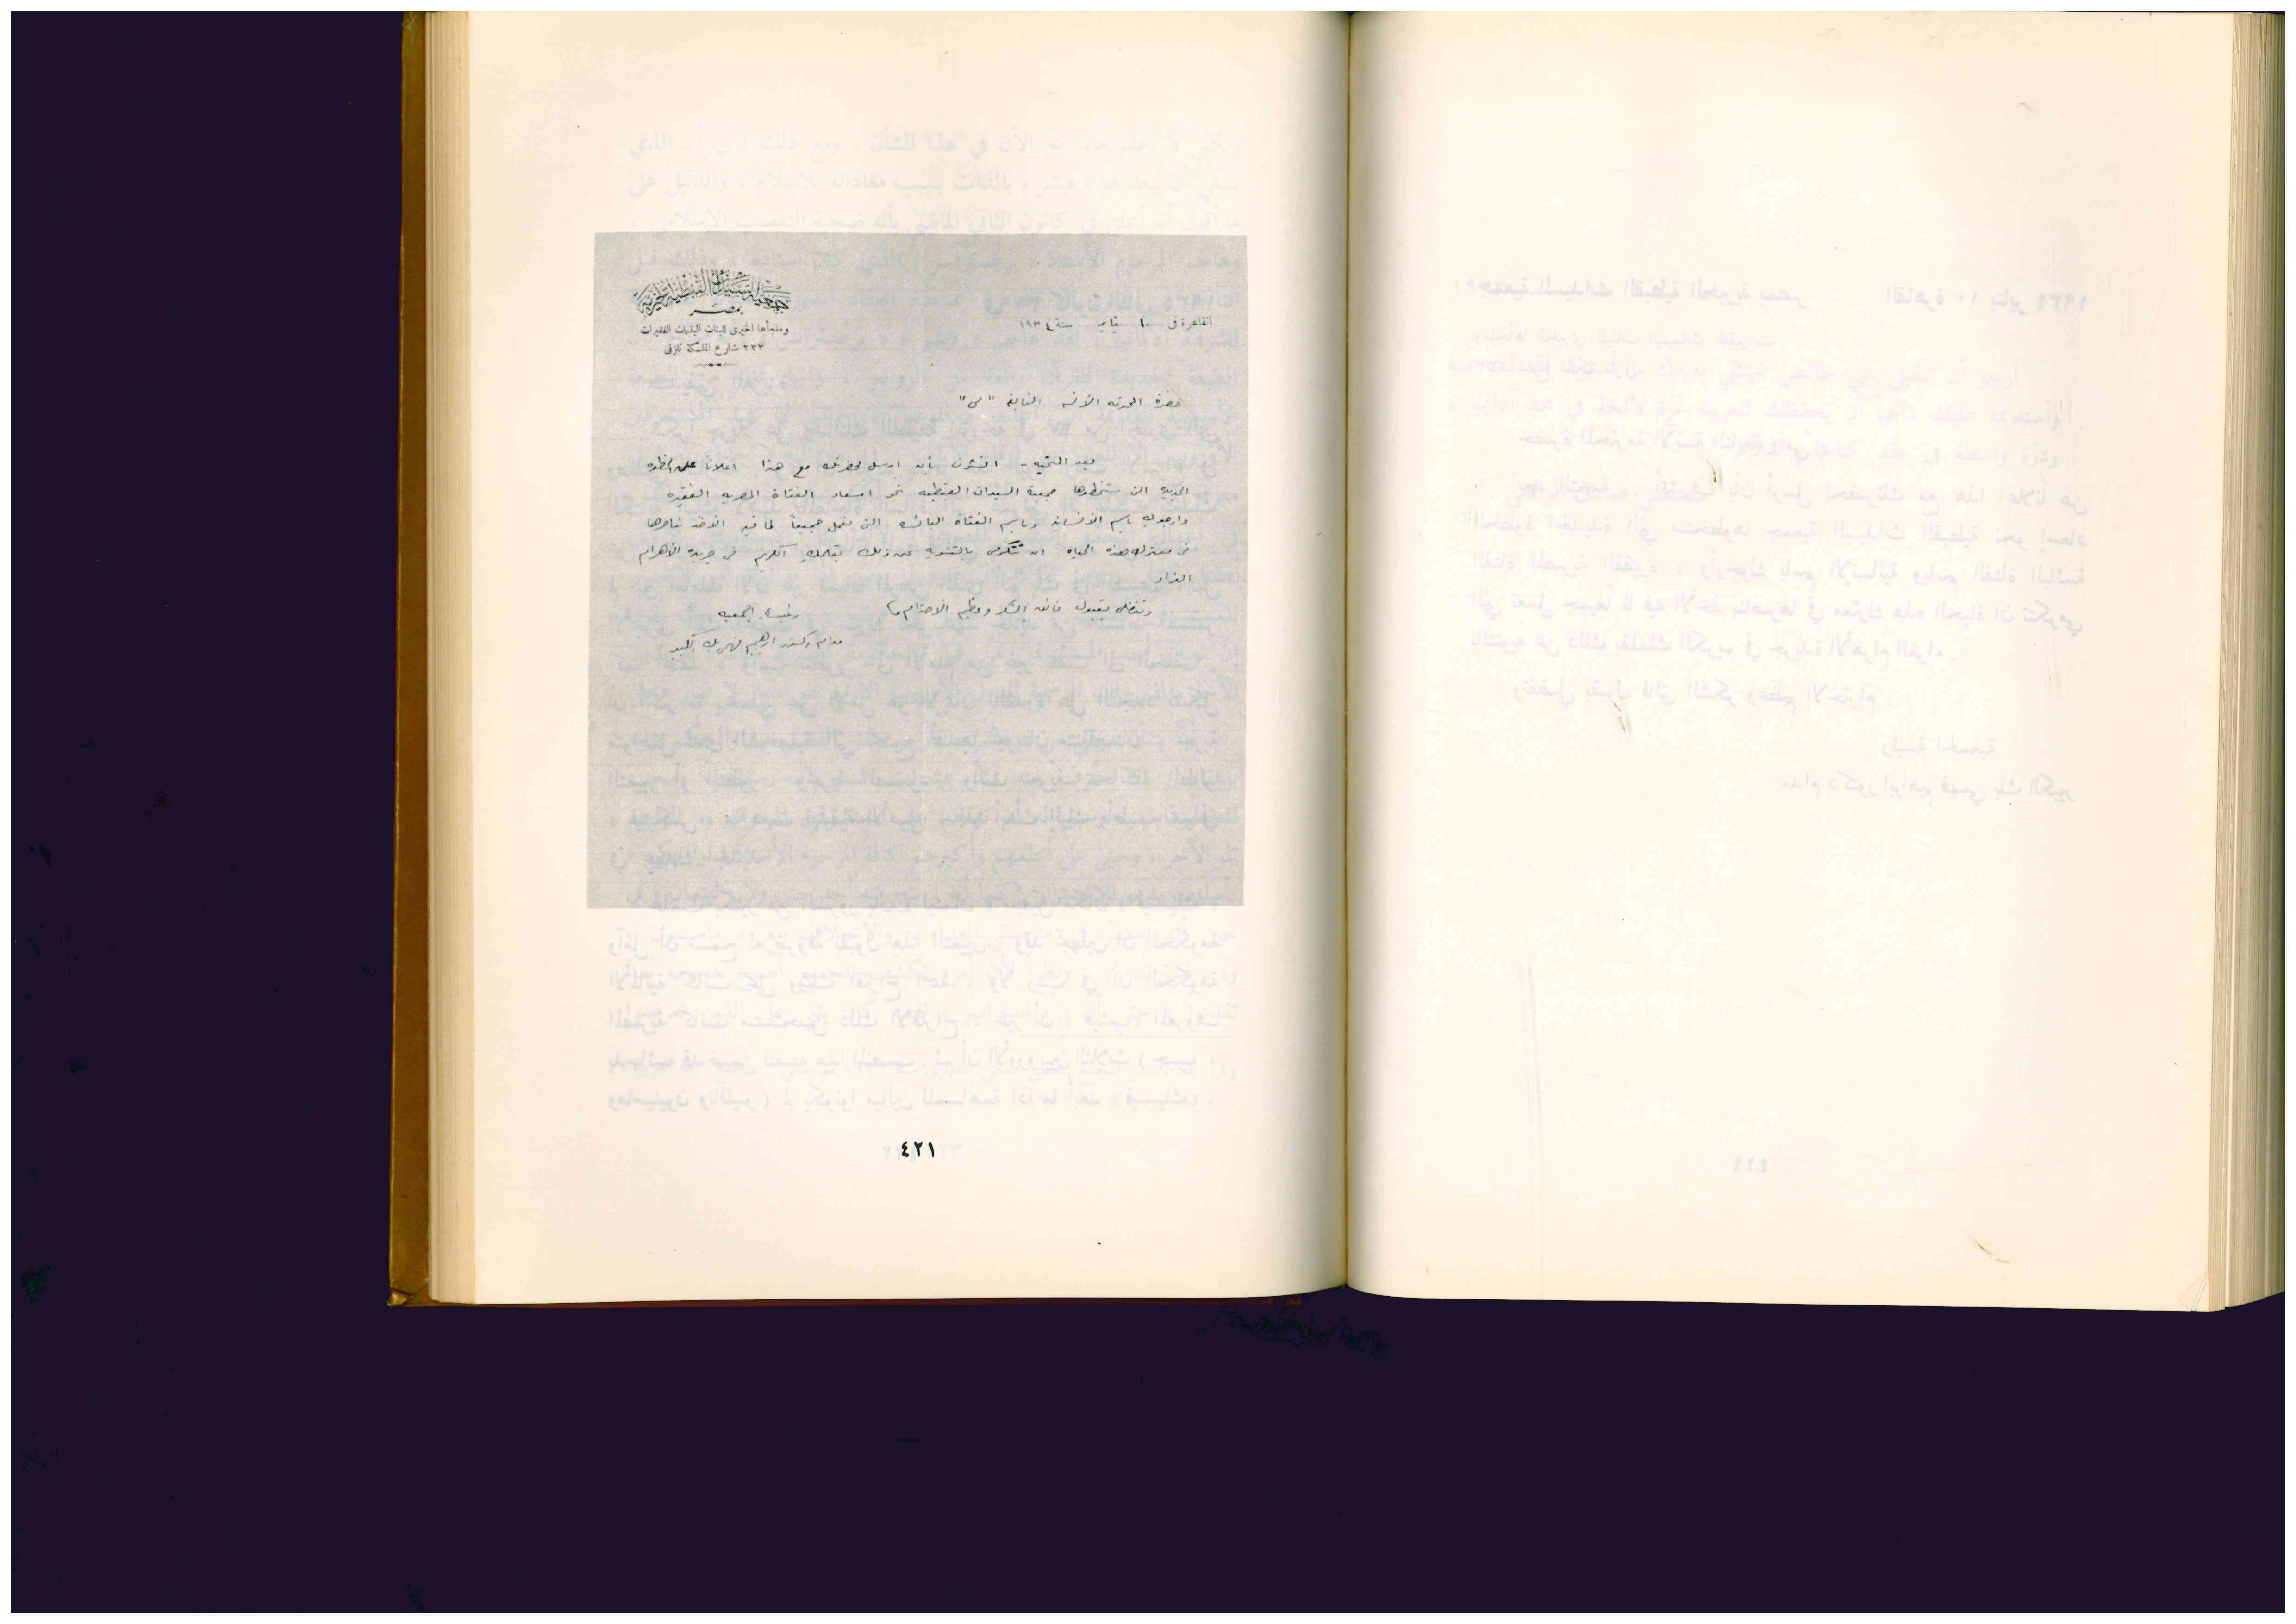 جمعية السيدات القبطية الخيرية
بمصر
وملجأها الخيرى للبنات اليتيمات الفقيرات
٢٣٣ شارع الملكة نازلى
القاهرة فى ١٠ يناير سنة ١٩٣٤
حضرة المحترمه الآنسه النابغة "مى"
بعد التحيه - اتشرف بأن ارسل لحضرتك مع هذا اعلاناً عن الخطوه
الجديده التى ستخطوها جمعية السيدات القبطيه نحو اسعاد الفتاة المصريه الفقيره
وارجوك باسم الانسانيه وباسم الفتاة البائسه التى نعمل جميعاً لما فيه الاخذ بناصرها
فى معترك هذه الحياه ان تتكرمى بالتنويه عن ذلك بقلمك الكريم فى جريدة الأهرام
الغراء
وتفضلى بقبول فائق الشكر وعظيم الاحترام
رئيسة الجمعيه
مدام دكتور ابراهيم فهمى بك الكبير
٤٢١